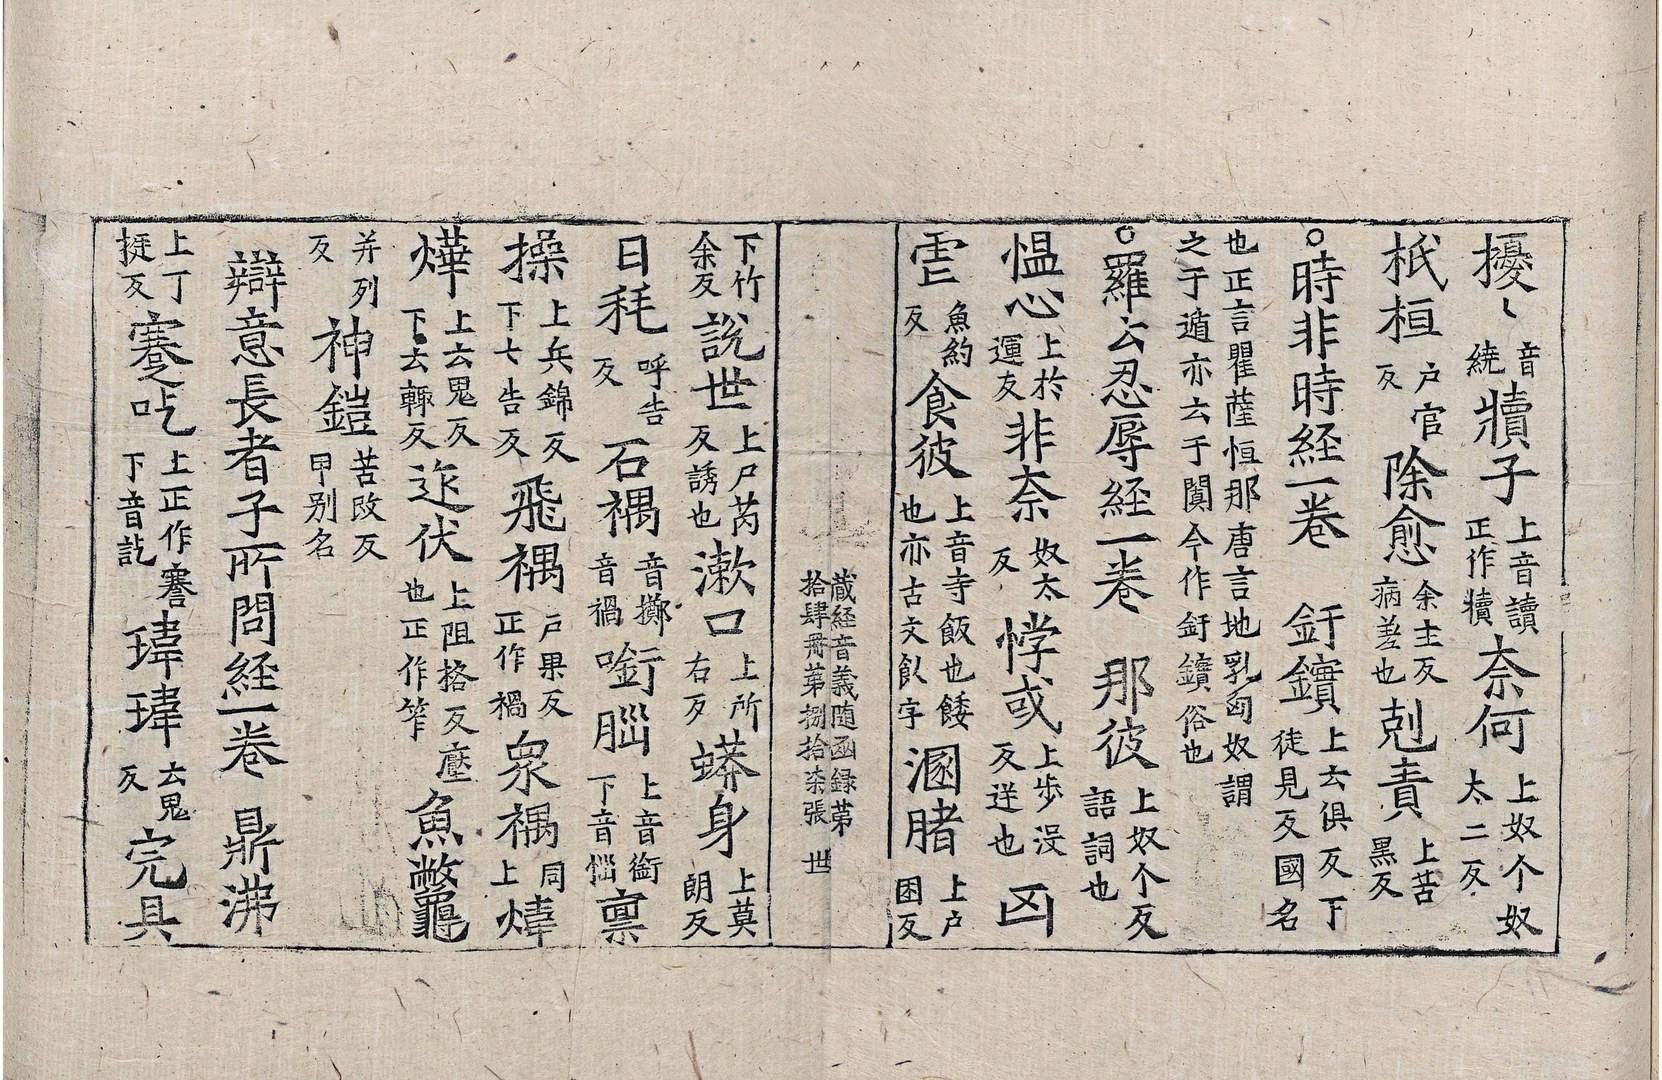 擾〻音繞犢子上音讀正作犢奈何上奴个奴太二反
柢桓户官反除愈余主反病差也剋責上苦黑反
○時非時経一卷 釪鑽上云俱反下徒見反國名
也正言瞿薩恒那唐言地乳匈奴謂之于遁亦云于闐今作釪鑽俗也
○羅云忍辱経一卷 那彼上奴个反語詞也
愠心上於運友非奈奴太反悖或上步没反逆也凶
虐魚約反食彼上音寺飯也餧也亦古文飤字溷䐗上户困反
藏経音義随函録第拾肆冊第捌拾柒張 世
下竹余反説世上尸芮反誘也漱口上所右反蟒身上莫朗反
日秏呼告反石𥛟音擲音禍㘅腦上音銜下音惱禀
操上兵錦反下七告反飛𥛟户果反正作禍衆𥛟同上煒
燁上云鬼反下云輒反迮伏上阻格反壓也正作笮魚鼈
并列反神鎧苦改反甲别名
辯意長者子所問経一卷 鼎沸
上丁挺反蹇吃上正作謇下音訖瑋瑋云鬼反完具